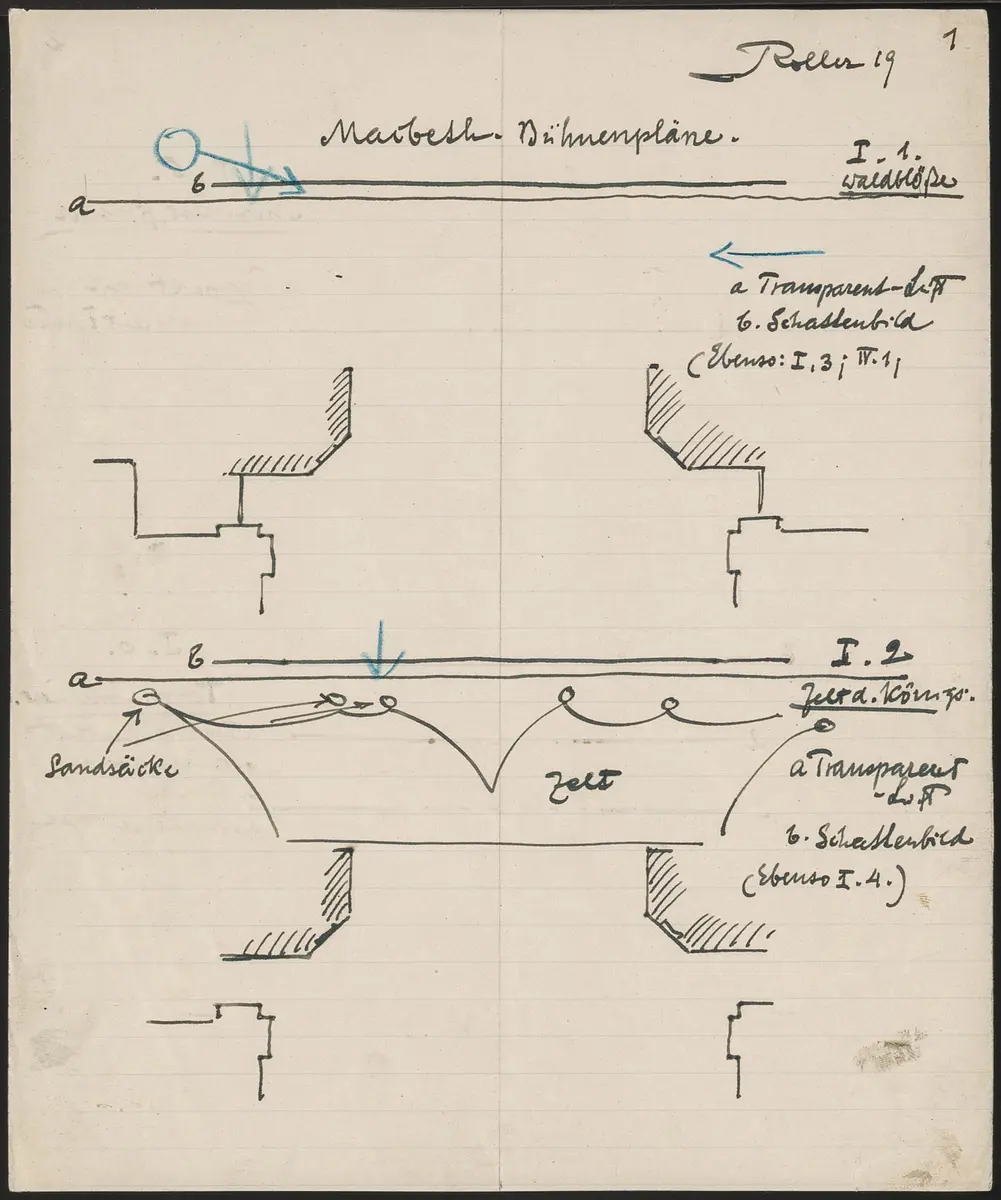 1
Roller 19
Macbeth. Bühnenpläne.
I. 1.
Waldblöße
b
a
a Transparent-Luft
b. Schattenbild
(Ebenso: I.3; IV.1;
b
I. 2
a
Zelt d. Königs.
Sandsäcke
Zelt
a Transparent
-Luft
b. Schattenbild
(Ebenso I.4.)